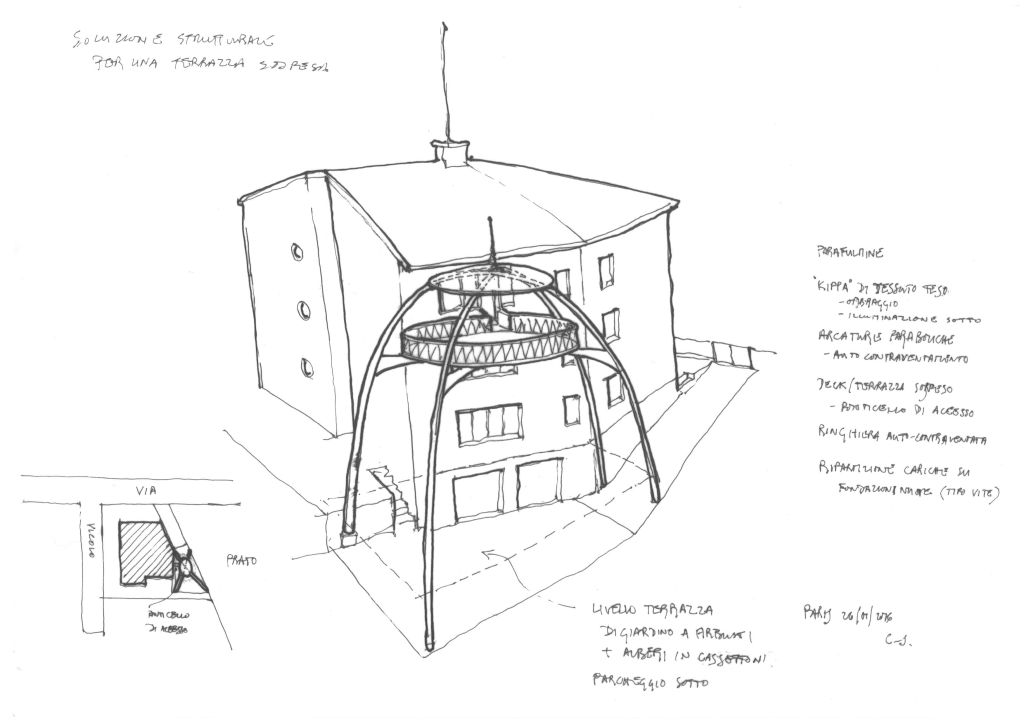 SOLUZIONE STRUTTURALE
PER UNA TERRAZZA SOSPESA
PARAFULMINE
"KIPPA" DI TESSUTO TESO
- OMBRAGGIO
- ILLUMINAZIONE SOTTO
ARCATURE PARABOLICHE
- AUTO CONTRAVENTAMENTO
DECK/TERRAZZA SOSPESO
- PONTICELLO DI ACESSO
RINGHIERA AUTO-CONTRAVENTATA
RIPARTIZIONE CARICHE SU
FONDAZIONI NUOVE (TIPO VITE)
VIA
VICOLO
PRATO
PONTICELLO
DI ACESSO
LIVELLO TERRAZZA
DI GIARDINO A ARBUSTI
+ ALBERI IN CASSETTONI
PARCHEGGIO SOTTO
PARIS 26/01/2016
C-J.